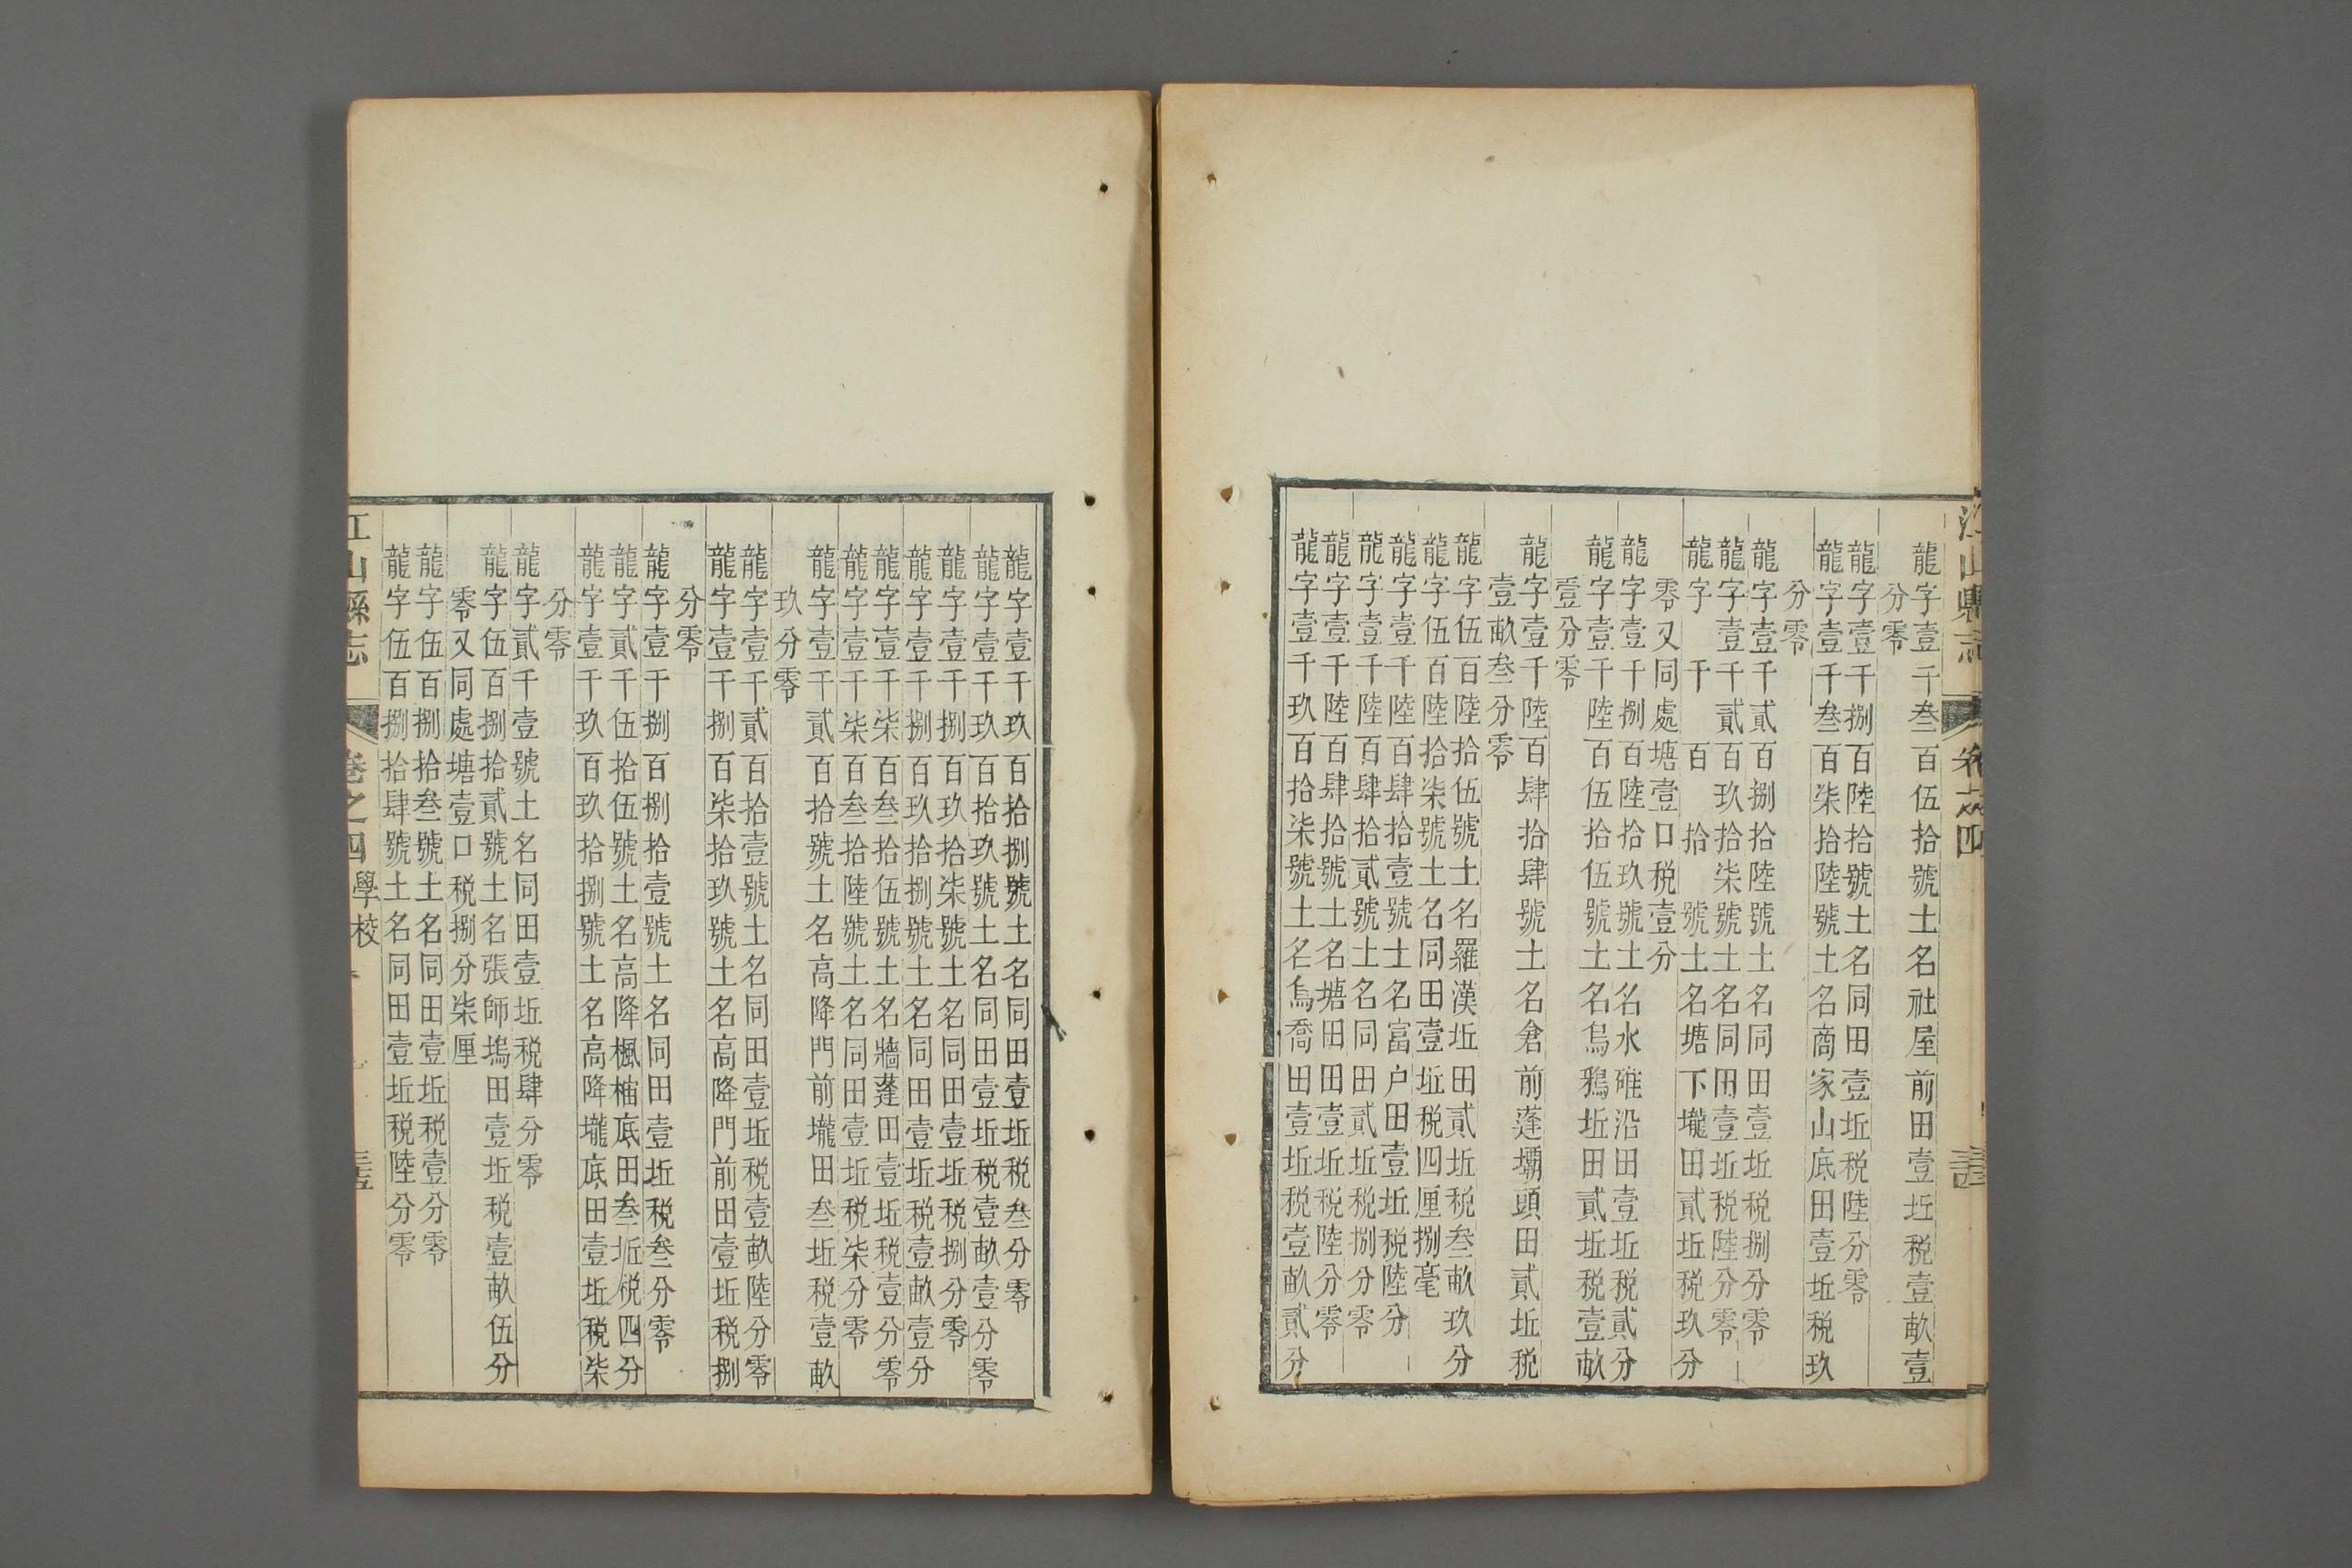 江山縣志 卷之四
龍字壹千叁百伍拾號土名社屋前田壹坵税壹畝壹
分零
龍字壹千捌百陸拾號土名同田壹坵税陸分零
龍字壹千叁百柒拾陸號土名商家山底田壹坵税玖
分零
龍字壹千貳百捌拾陸號土名同田壹坵税捌分零
龍字壹千貳百玖拾柒號土名同田壹坵税陸分零
龍字 千 百 拾 號土名塘下壠田貳坵税玖分
零又同處塘壹口税壹分
龍字壹千捌百陸拾玖號土名水碓沿田壹坵税貳分
龍字壹千陸百伍拾伍號土名烏鴉坵田貳坵税壹畝
壹分零
龍字壹千陸百肆拾肆號土名倉前蓬壩頭田貳坵税
壹畝叁分零
龍字伍百陸拾伍號土名羅漢坵田貳坵税叁畝玖分
龍字伍百陸拾柒號土名同田壹坵税四厘捌毫
龍字壹千陸百肆拾壹號土名富户田壹坵税陸分
龍字壹千陸百肆拾貳號土名同田貳坵税捌分零
龍字壹千陸百肆拾號土名塘田田壹坵税陸分零
龍字壹千玖百拾柒號土名烏喬田壹坵税壹畝貳分
龍字壹千玖百拾捌號土名同田壹坵税叁分零
龍字壹千玖百拾玖號土名同田壹坵税壹畝壹分零
龍字壹千捌百玖拾柒號土名同田壹坵税捌分零
龍字壹千捌百玖拾捌號土名同田壹坵税壹畝壹分
龍字壹千柒百叁拾伍號土名牆蓬田壹坵税壹分零
龍字壹千柒百叁拾陸號土名同田壹坵税柒分零
龍字壹千貳百拾號土名高降門前壠田叁坵税壹畝
玖分零
龍字壹千貳百拾壹號土名同田壹坵税壹畝陸分零
龍字壹千捌百柒拾玖號土名高降門前田壹坵税捌
分零
龍字壹千捌百捌拾壹號土名同田壹坵税叁分零
龍字貳千伍拾伍號土名高降楓柚底田叁坵税四分
龍字壹千玖百玖拾捌號土名高降壠底田壹坵税柒
分零
龍字貳千壹號土名同田壹坵税肆分零
龍字伍百捌拾貳號土名張師塢田壹坵税壹畝伍分
零又同處塘壹口税捌分柒厘
龍字伍百捌拾叁號土名同田壹坵税壹分零
龍字伍百捌拾肆號土名同田壹坵税陸分零
江山縣志 卷之四 學校